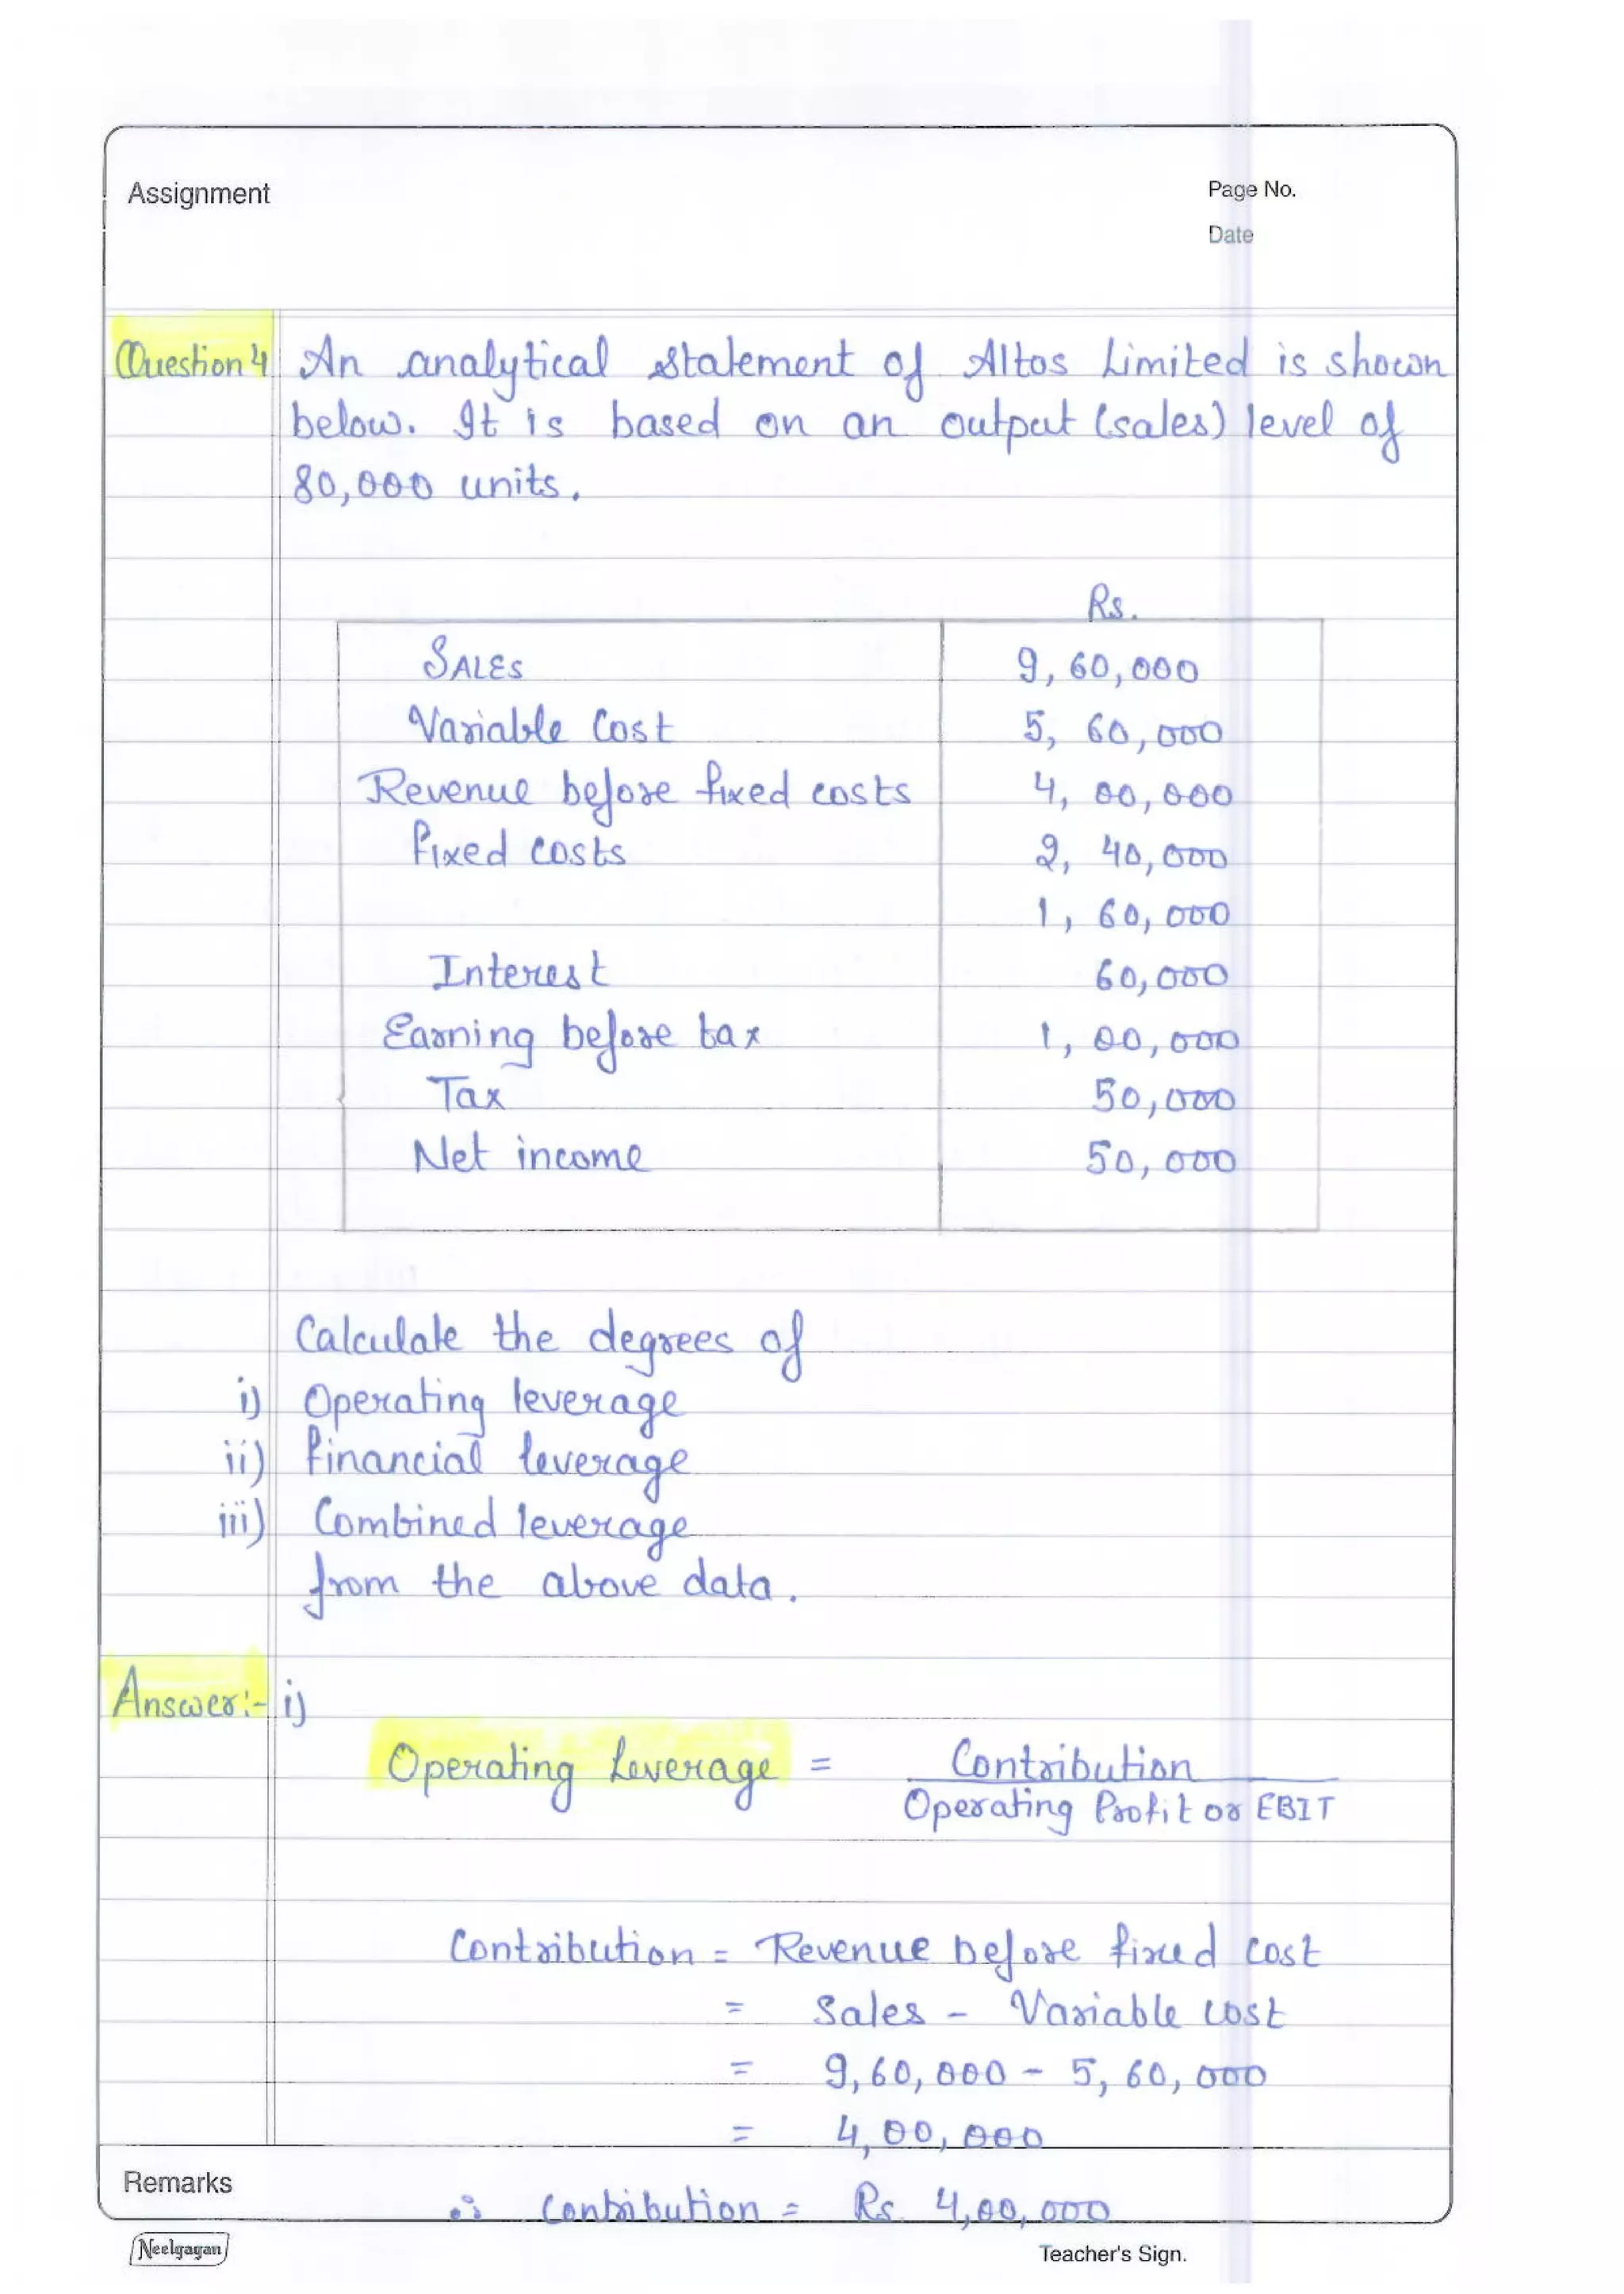 Assignment
Page No.
Date
Question 4 An analytical statement of Altos Limited is shown
below. It is based on an output (sales) level of
80,000 units.
Rs.
SALES 9,60,000
Variable Cost 5,60,000
Revenue before fixed costs 4,00,000
Fixed costs 2,40,000
1,60,000
Interest 60,000
Earning before tax 1,00,000
Tax 50,000
Net income 50,000
Calculate the degrees of
i) Operating leverage
ii) Financial leverage
iii) Combined leverage
from the above data.
Answer:- i)
Operating Leverage = Contribution
Operating Profit or EBIT
Contribution = Revenue before fixed cost
= Sales - Variable cost
= 9,60,000 - 5,60,000
= 4,00,000
Remarks
∴ Contribution = Rs. 4,00,000
Neelgagan
Teacher's Sign.